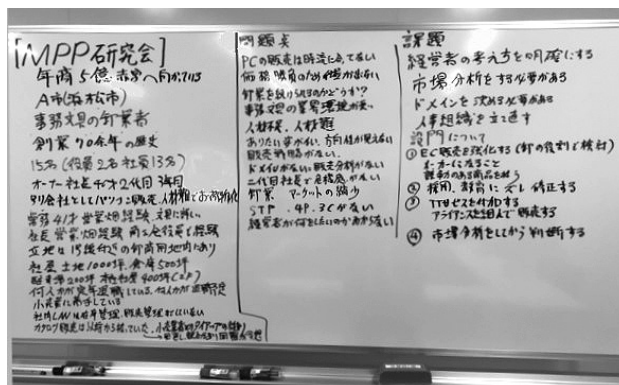 [MPP研究会]
年商5億 赤字へ向かている
A市(浜松市)
事務文具の卸業者
創業70余年の歴史
15名(役員2名 社員13名)
オーナー社長 2代目 3年目
別会社としてパソコン販売
常務41才 営業畑経験 文具に詳しい
社長 営業畑経験 商工会役員で経験
立地は15 の卸商団地内にあり
社屋 土地1000坪 倉庫500坪
駐車場200坪 本社社屋400坪(2F)
何人かが定年退職している
小売業に苦手している
社内LANは在庫管理、販売管理
カタログ販売は以前から
問題点
PCの販売は時流にあってない
価格勝負のため
卸業を続けられるのかどうか?
事務文具の業界環境が悪い
人材不足、人材難
ありたい姿がない、方向性が見えない
販売戦略がない、
ドメインがない、販売分析がない
二代目社長で
卸業 マーケットの縮少
STP、4P、3Cがない
経営者が何をしたいのかわからない
課題
経営者の考え方を明確にする
市場分析をする必要がある
ドメインを決める必要がある
人事組織を立て直す
設問について
① EC販売を強化する(卸の役割で検討)
メーカーになること
魅力のある商品を
② 採用、教育に 修正する
③ 付加する
アライアンスを組んで販売する
④ 市場分析をしてから判断する